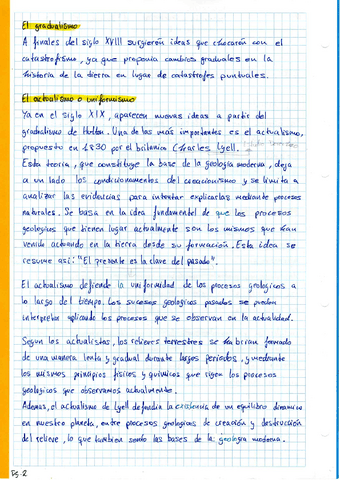 El gradualismo
A finales del siglo XVIII surgieron ideas que chocaron con el
catastrofismo, ya que proponía cambios graduales en la
historia de la tierra en lugar de catastrofes puntuales.
El actualismo o uniformismo
Ya en el siglo XIX, aparecen nuevas ideas a partir del
gradualismo de Hutton. Una de las más importantes es el actualismo,
propuesto en 1830 por el britanico Charles Lyell.
Esta teoría, que constituye la base de la geología moderna, deja
a un lado los condicionamentos del creacionismo y se limita a
analizar las evidencias para intentar explicarlas mediante procesos
naturales. Se basa en la idea fundamental de que los procesos
geologicos que tienen lugar actualmente son los mismos que han
venido actuando en la tierra desde su formación. Esta idea se
resume así: "El presente es la clave del pasado".
El actualismo defiende la uniformidad de los procesos geológicos a
lo largo del tiempo. Los sucesos geológicos pasados se pueden
interpretar aplicando los procesos que se observan en la actualidad.
Segun los actualistas, los relieves terrestres se habrian formado
de una manera lenta y gradual durante largos periodos, y mediante
los mismos principios físicos y químicos que rigen los procesos
geologicos que observamos actualmente.
Ademas, el actualismo de Lyell defendía la existencia de un equilibrio dinamico
en nuestro planeta, entre procesos geologicos de creación y destrucción
del relieve, lo que tambien sento las bases de la geologia moderna.
Pg. 2